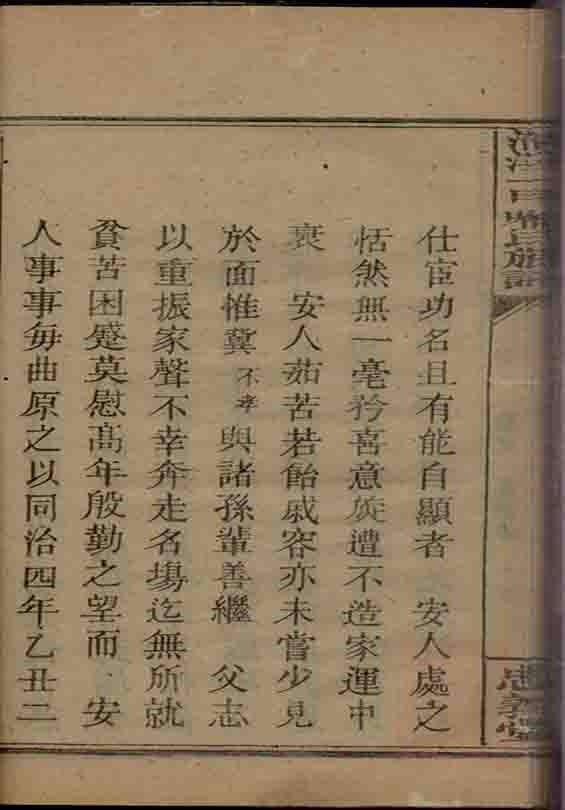 仕宦功名且有能自顯者　安人處之
恬然無一毫矜喜意旋遭不造家運中
衰　安人茹苦若飴戚容亦未嘗少見
於面惟冀不孝與諸孫輩善繼　父志
以重振家聲不幸奔走名場迄無所就
貧苦困蹙莫慰高年殷勤之望而　安
人事事每曲原之以同治四年乙丑二
氏族譜
忠義堂